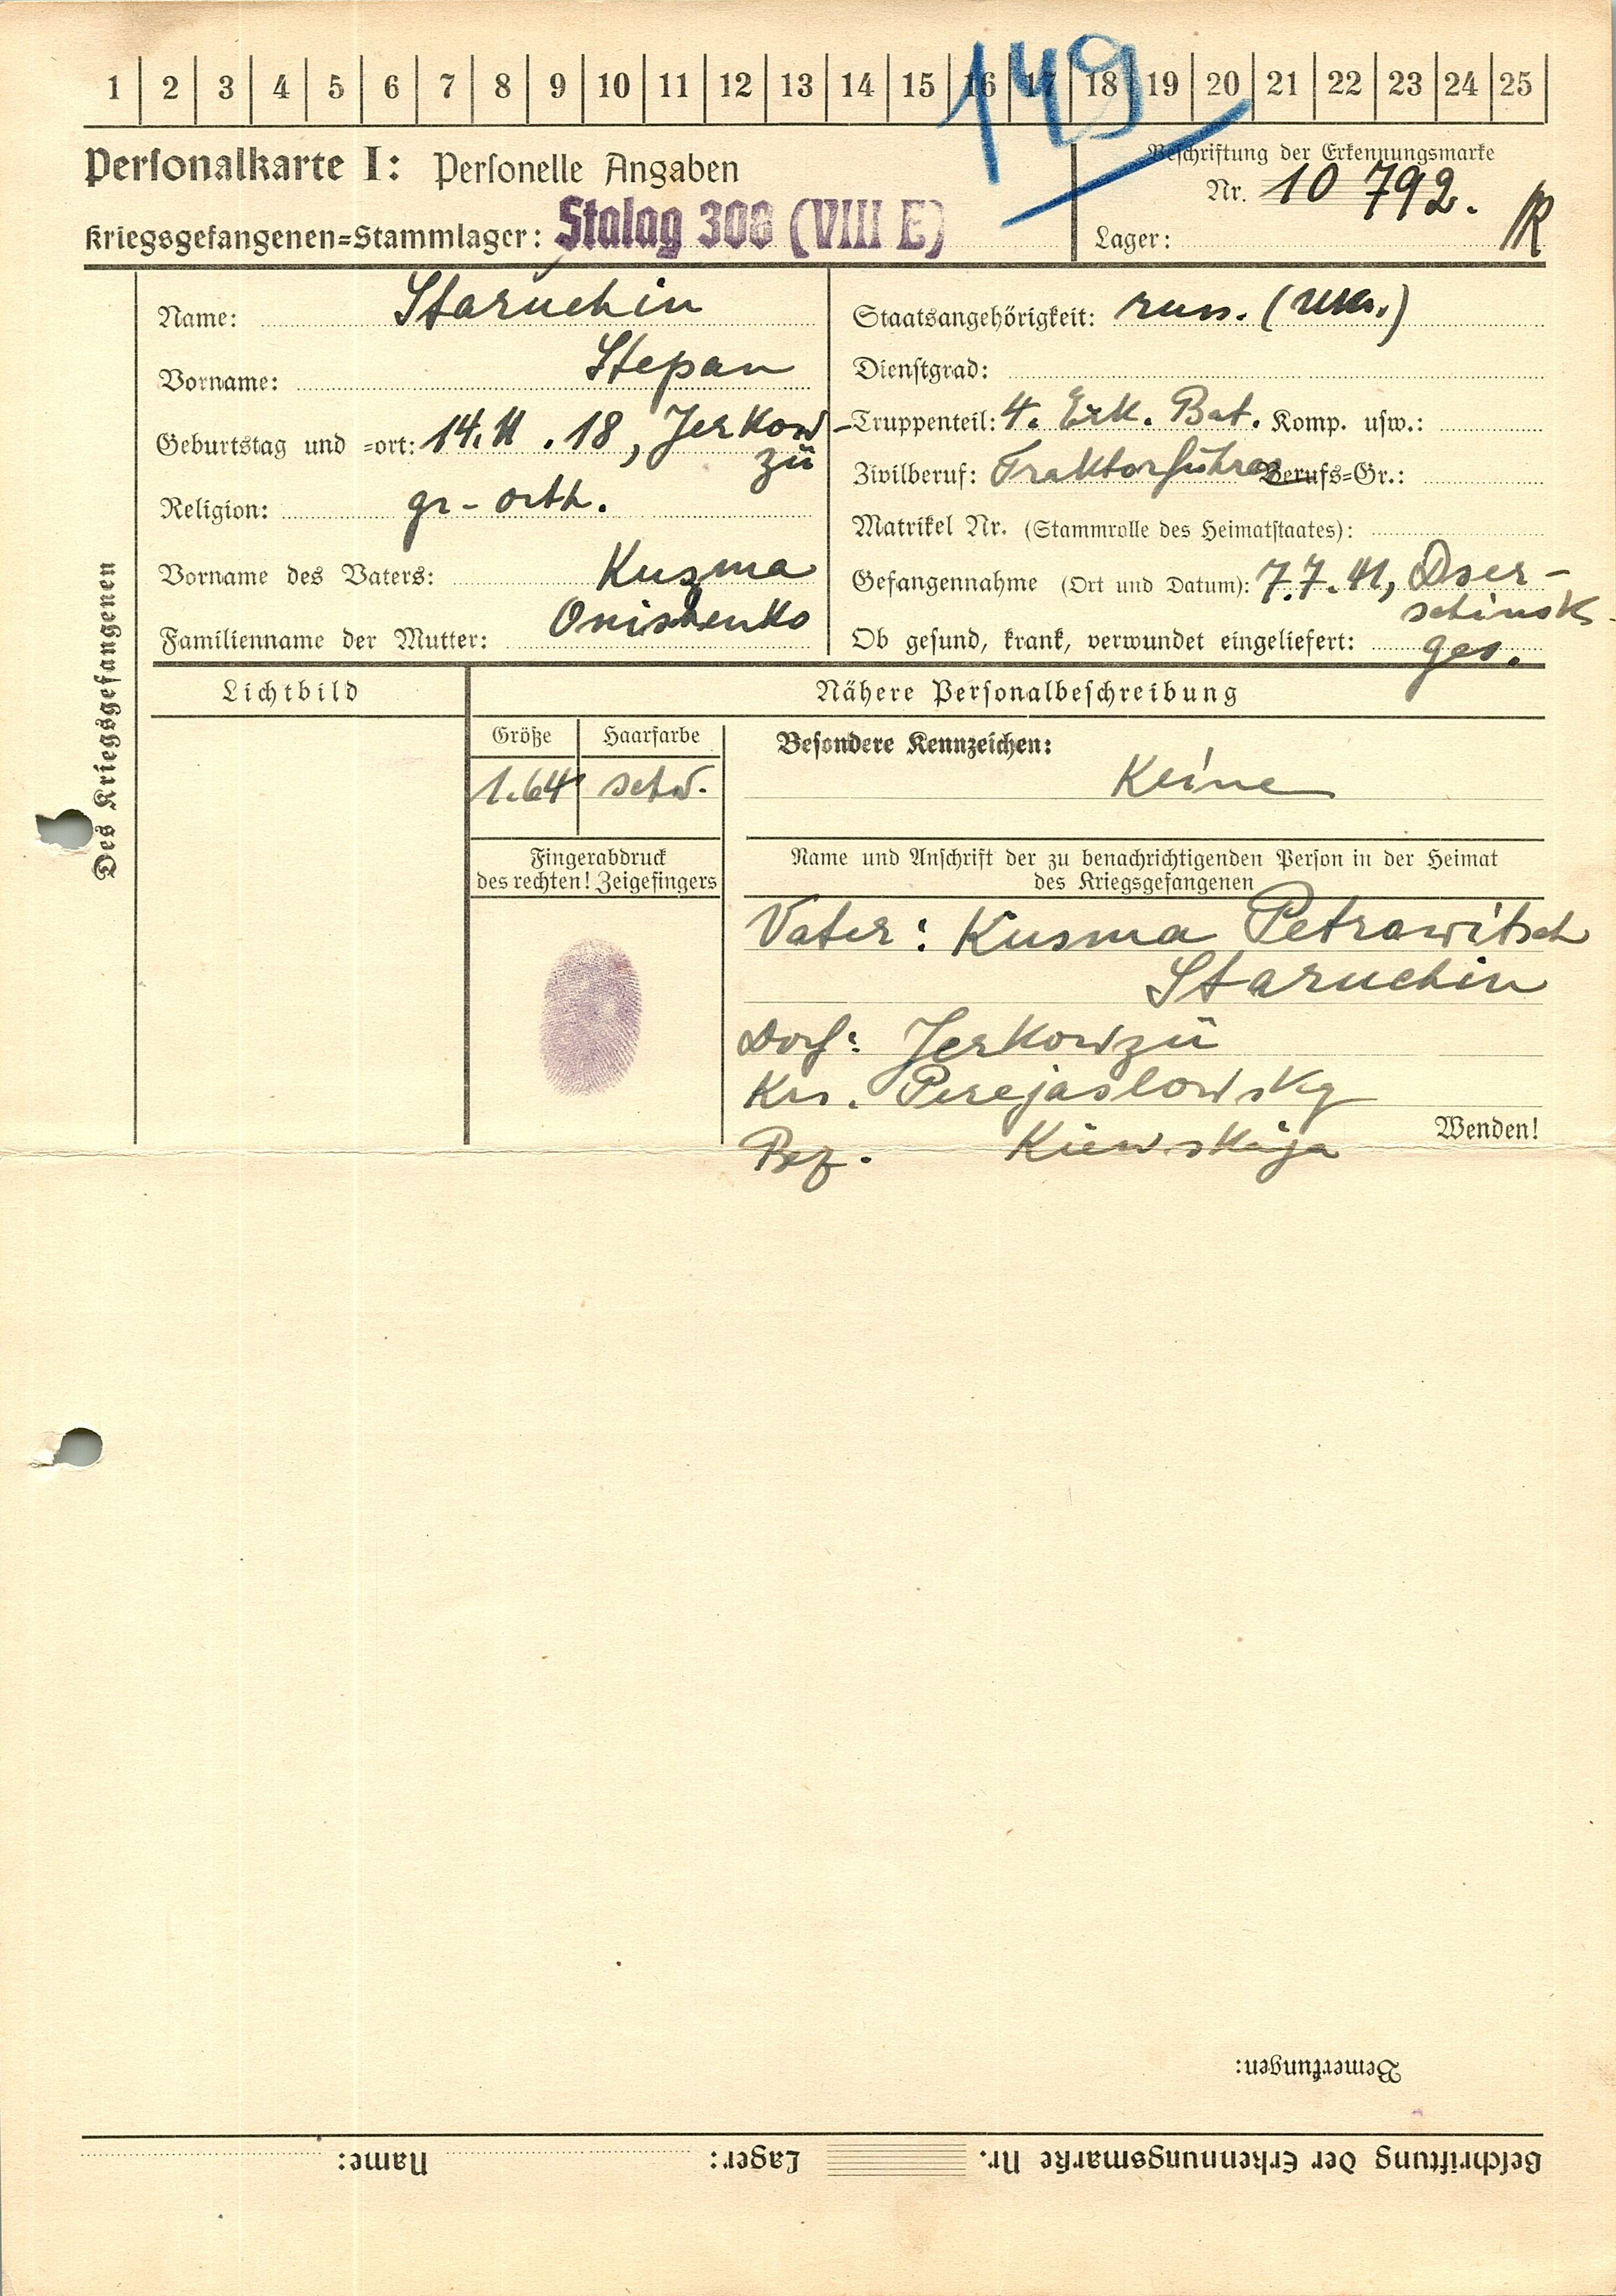 1 2 3 4 5 6 7 8 9 10 11 12 13 14 15 16 17 18 19 20 21 22 23 24 25
149
Personalkarte I: Personelle Angaben
Beschriftung der Erkennungsmarke
Nr. 10 792.
Kriegsgefangenen=Stammlager: Stalag 308 (VIII E)
Lager: R
Des Kriegsgefangenen
Name: Staruchin
Vorname: Stepan
Geburtstag und =ort: 14. 11. 18, Jerkow-
zü
Religion: gr-orth.
Vorname des Vaters: Kusma
Familienname der Mutter: Onishenko
Staatsangehörigkeit: russ. (ukr.)
Dienstgrad:
Truppenteil: 4. Erk. Bat. Komp. usw.:
Zivilberuf: Traktorführer Berufs=Gr.:
Matrikel Nr. (Stammrolle des Heimatstaates):
Gefangennahme (Ort und Datum): 7.7.41, Dser-
schinsk
Ob gesund, krank, verwundet eingeliefert: ges.
Lichtbild
Nähere Personalbeschreibung
Größe Haarfarbe
1.64 schw.
Besondere Kennzeichen:
Keine
Fingerabdruck
des rechten! Zeigefingers
Name und Anschrift der zu benachrichtigenden Person in der Heimat
des Kriegsgefangenen
Vater: Kusma Petrowitsch
Staruchin
Dorf: Jerkowzü
Krs. Perejaslowsky
Bez. Kiewskaja
Wenden!
Bemerkungen:
Beschriftung der Erkennungsmarke Nr. Lager: Name: